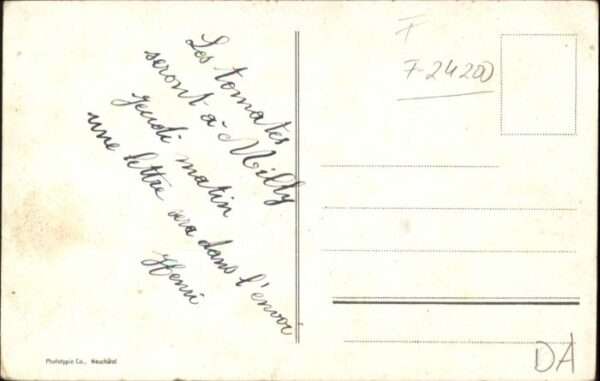 Les tomates
seront à Milly
jeudi matin
une lettre sera dans l'envoi
Henri
F
F-24200
DA
Phototypie Co., Neuchâtel